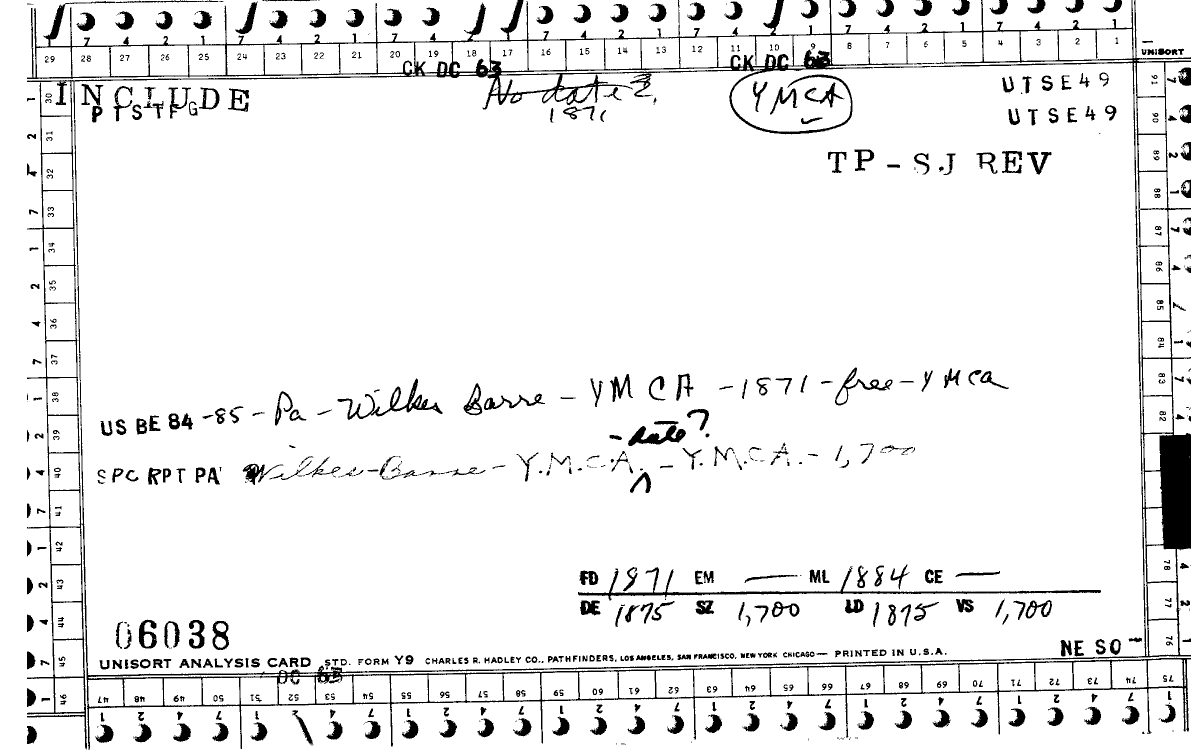 7 4 2 1 7 4 2 1 7 4 2 1 7 4 2 1 7 4 2 1 7 4 2 1 7 4 2 1
29 28 27 26 25 24 23 22 21 20 19 18 17 16 15 14 13 12 11 10 9 8 7 6 5 4 3 2 1 UNISORT
CK DC 63 CK DC 63
INCLUDE No date 2. YMCA UTSE49
PISTFG 1871 UTSE49
TP-SJ REV
US BE 84-85-Pa-Wilkes Barre-YMCA-1871-free-YMca
-date?
SPC RPT PA Wilkes-Barre-Y.M.C.A.-Y.M.C.A.-1,700
FD 1871 EM — ML 1884 CE —
DE 1875 SZ 1,700 LD 1875 VS 1,700
06038 NE SO
UNISORT ANALYSIS CARD STD. FORM Y9 CHARLES R. HADLEY CO., PATHFINDERS, LOS ANGELES, SAN FRANCISCO, NEW YORK CHICAGO— PRINTED IN U.S.A.
DC 63
47 48 49 50 51 52 53 54 55 56 57 58 59 60 61 62 63 64 65 66 67 68 69 70 71 72 73 74 75
1 2 4 7 1 2 4 7 1 2 4 7 1 2 4 7 1 2 4 7 1 2 4 7 1 2 4 7